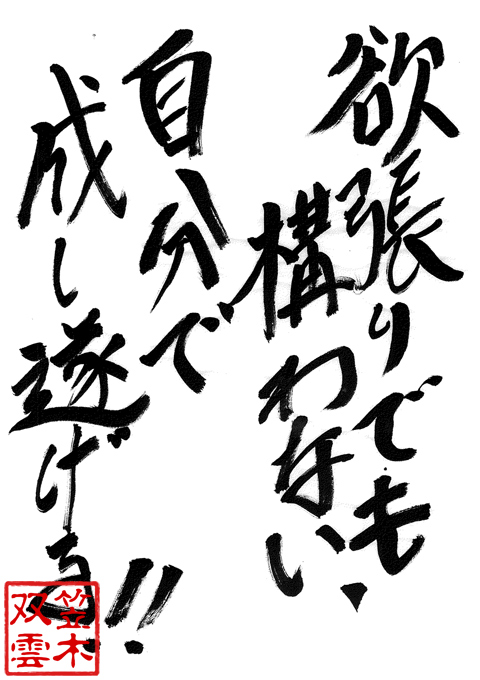 欲張りでも
構わない、
自分で
成し遂げる!!
笠木
双雲